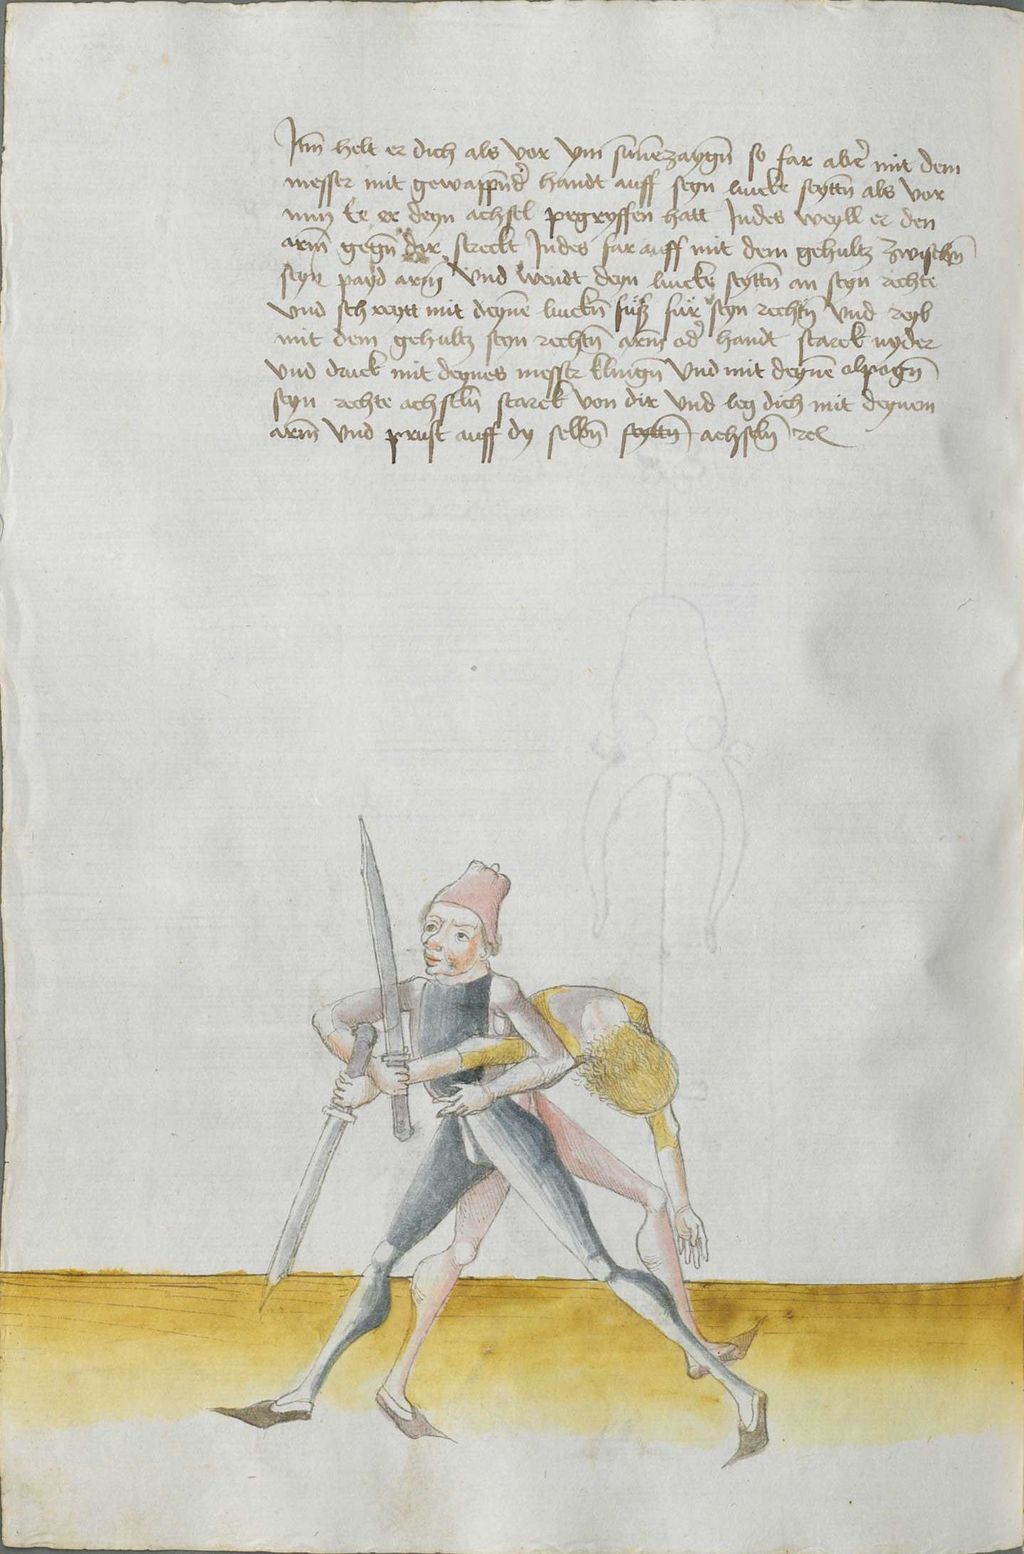 Jtm̃ helt er dich als vor ym sum̃erzaygñ so far aber mit dem
messer mit gewappñdr̃ handt auff seyn lincke seyttñ als vor
nun Ee er deyn achsel pegryffen hatt Jndes weyll er den
arm̃ gegñ dir streckt Jndes far auff mit dem gehultz zwischñ
seyn payd arm̃ Vnd wendt deyn lincke seyttñ an seyn rechte
Vnd schreytt mit deynẽ linckñ fuß fur seyn rechtñ Vnd reyb
mit dem gehultz seyn rechtñ arm̃ odr̃ handt starck nyder
Vnd druck mit deynes messer klingñ Vnd mit deynẽ elpogñ
seyn rechte achselñ starck von dir Vnd leg dich mit deynem
arm̃ Vnd prust auff dy selbñ seyttñ achselñ